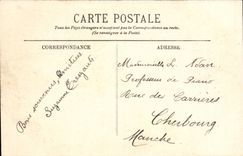 CARTE POSTALE
Tous les Pays étrangers n'acceptent pas la Correspondance au recto.
(Se renseigner à la Poste)
CORRESPONDANCE
ADRESSE
Bons souvenirs,
Suzanne
Mademoiselle Le Noir
Professeur de Piano
Rue de Carrières
Cherbourg
Manche